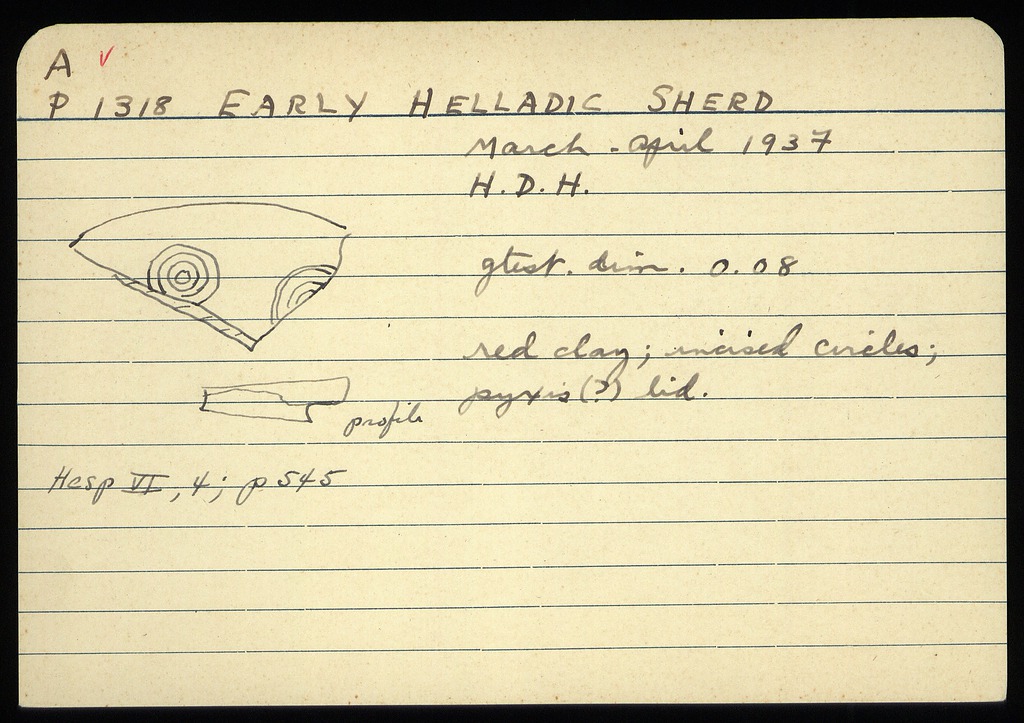 A ✓
P 1318 EARLY HELLADIC SHERD
March - April 1937
H. D. H.
gtest. dim. 0.08
red clay; incised circles;
pyxis (?) lid.
profile
Hesp VI, 4; p 545